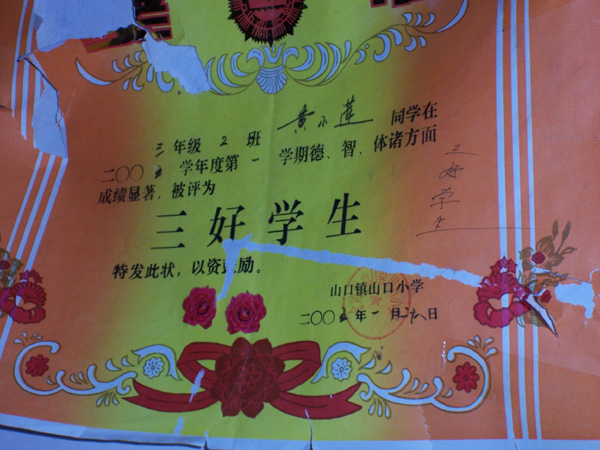 三年级2班 黄小莲 同学在
二〇〇五学年度第一学期德、智、体诸方面
成绩显著、被评为
三好学生
特发此状，以资鼓励。
山口镇山口小学
二〇〇五年一月十八日
三好学生